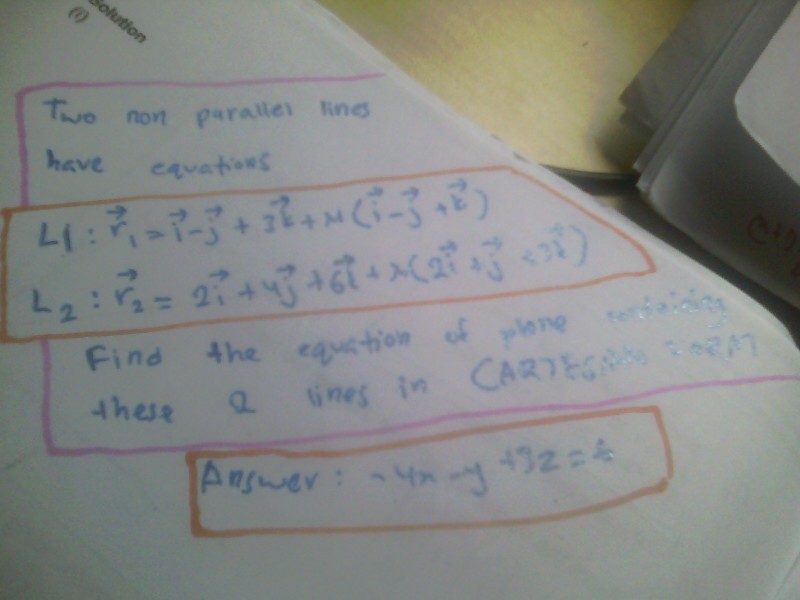 Solution
(i)
Two non parallel lines
have equations
L1 : r⃗₁ = i⃗ - j⃗ + 3k⃗ + λ(i⃗ - j⃗ + k⃗)
L₂ : r⃗₂ = 2i⃗ + 4j⃗ + 6k⃗ + λ(2i⃗ + j⃗ + 3k⃗)
Find the equation of plane containing
these 2 lines in CARTESIAN FORM
Answer : -4x - y + 3z = 6